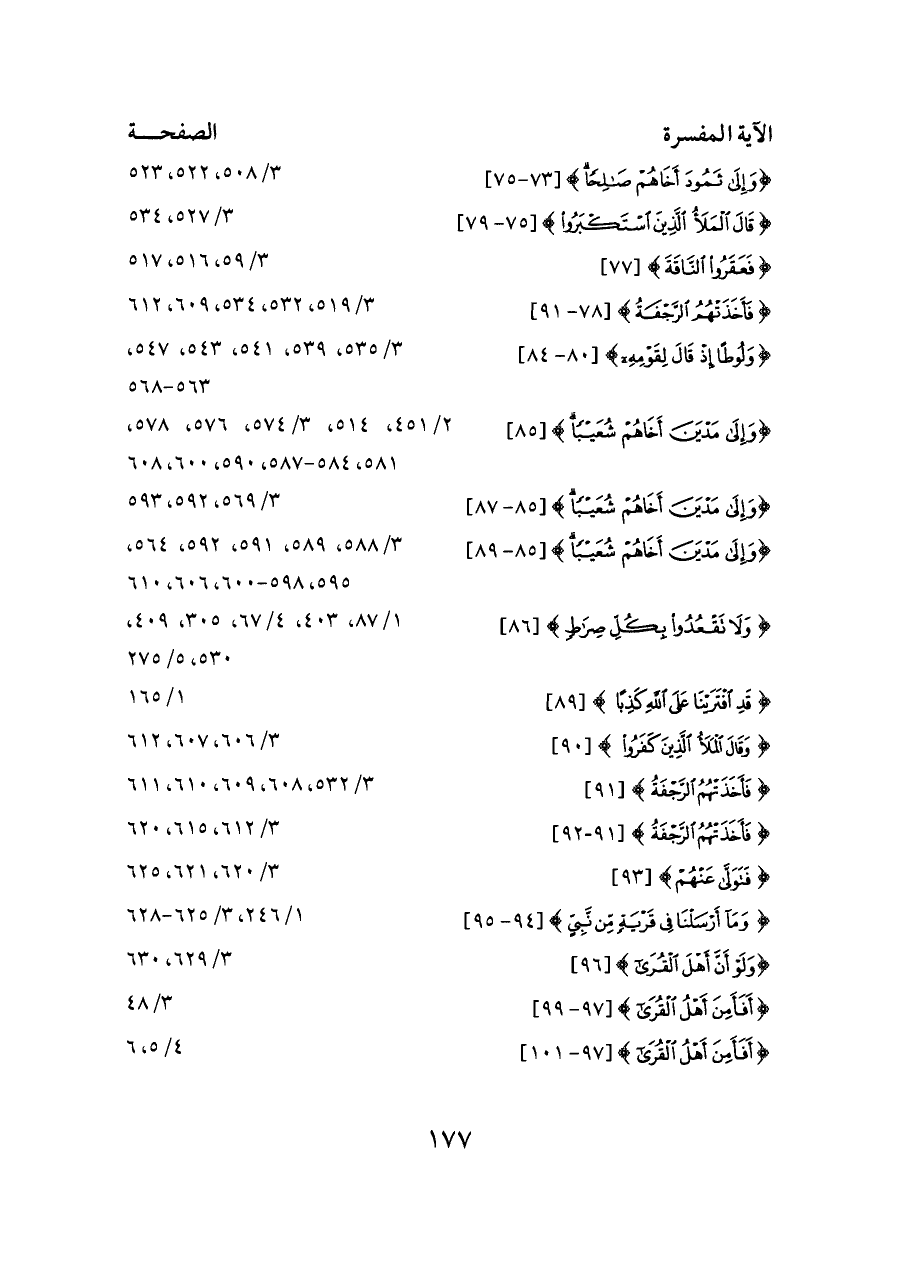 الآية المفسرة الصفحـــة
﴿وَإِلَىٰ ثَمُودَ أَخَاهُمْ صَـٰلِحًاۗ﴾ [٧٣-٧٥] ٣/ ٥٠٨، ٥٢٢، ٥٢٣
﴿قَالَ ٱلْمَلَأُ ٱلَّذِينَ ٱسْتَكْبَرُوا۟﴾ [٧٥- ٧٩] ٣/ ٥٢٧، ٥٣٤
﴿فَعَقَرُوا۟ ٱلنَّاقَةَ﴾ [٧٧] ٣/ ٥٩، ٥١٦، ٥١٧
﴿فَأَخَذَتْهُمُ ٱلرَّجْفَةُ﴾ [٧٨- ٩١] ٣/ ٥١٩، ٥٣٢، ٥٣٤، ٦٠٩، ٦١٢
﴿وَلُوطًا إِذْ قَالَ لِقَوْمِهِۦ﴾ [٨٠- ٨٤] ٣/ ٥٣٥، ٥٣٩، ٥٤١، ٥٤٣، ٥٤٧،
٥٦٣-٥٦٨
﴿وَإِلَىٰ مَدْيَنَ أَخَاهُمْ شُعَيْبًاۗ﴾ [٨٥] ٢/ ٤٥١، ٥١٤، ٣/ ٥٧٤، ٥٧٦، ٥٧٨،
٥٨١، ٥٨٤-٥٨٧، ٥٩٠، ٦٠٠، ٦٠٨
﴿وَإِلَىٰ مَدْيَنَ أَخَاهُمْ شُعَيْبًاۗ﴾ [٨٥- ٨٧] ٣/ ٥٦٩، ٥٩٢، ٥٩٣
﴿وَإِلَىٰ مَدْيَنَ أَخَاهُمْ شُعَيْبًاۗ﴾ [٨٥- ٨٩] ٣/ ٥٨٨، ٥٨٩، ٥٩١، ٥٩٢، ٥٦٤،
٥٩٥، ٥٩٨-٦٠٠، ٦٠٦، ٦١٠
﴿وَلَا تَقْعُدُوا۟ بِكُلِّ صِرَٰطٍ﴾ [٨٦] ١/ ٨٧، ٤٠٣، ٤/ ٦٧، ٣٠٥، ٤٠٩،
٥٣٠، ٥/ ٢٧٥
﴿قَدِ ٱفْتَرَيْنَا عَلَى ٱللَّهِ كَذِبًا﴾ [٨٩] ١/ ١٦٥
﴿وَقَالَ ٱلْمَلَأُ ٱلَّذِينَ كَفَرُوا۟﴾ [٩٠] ٣/ ٦٠٦، ٦٠٧، ٦١٢
﴿فَأَخَذَتْهُمُ ٱلرَّجْفَةُ﴾ [٩١] ٣/ ٥٣٢، ٦٠٨، ٦٠٩، ٦١٠، ٦١١
﴿فَأَخَذَتْهُمُ ٱلرَّجْفَةُ﴾ [٩١-٩٢] ٣/ ٦١٢، ٦١٥، ٦٢٠
﴿فَتَوَلَّىٰ عَنْهُمْ﴾ [٩٣] ٣/ ٦٢٠، ٦٢١، ٦٢٥
﴿وَمَآ أَرْسَلْنَا فِى قَرْيَةٍ مِّن نَّبِىٍّ﴾ [٩٤- ٩٥] ١/ ٢٤٦، ٣/ ٦٢٥-٦٢٨
﴿وَلَوْ أَنَّ أَهْلَ ٱلْقُرَىٰٓ﴾ [٩٦] ٣/ ٦٢٩، ٦٣٠
﴿أَفَأَمِنَ أَهْلُ ٱلْقُرَىٰٓ﴾ [٩٧- ٩٩] ٣/ ٤٨
﴿أَفَأَمِنَ أَهْلُ ٱلْقُرَىٰٓ﴾ [٩٧- ١٠١] ٤/ ٥، ٦
١٧٧